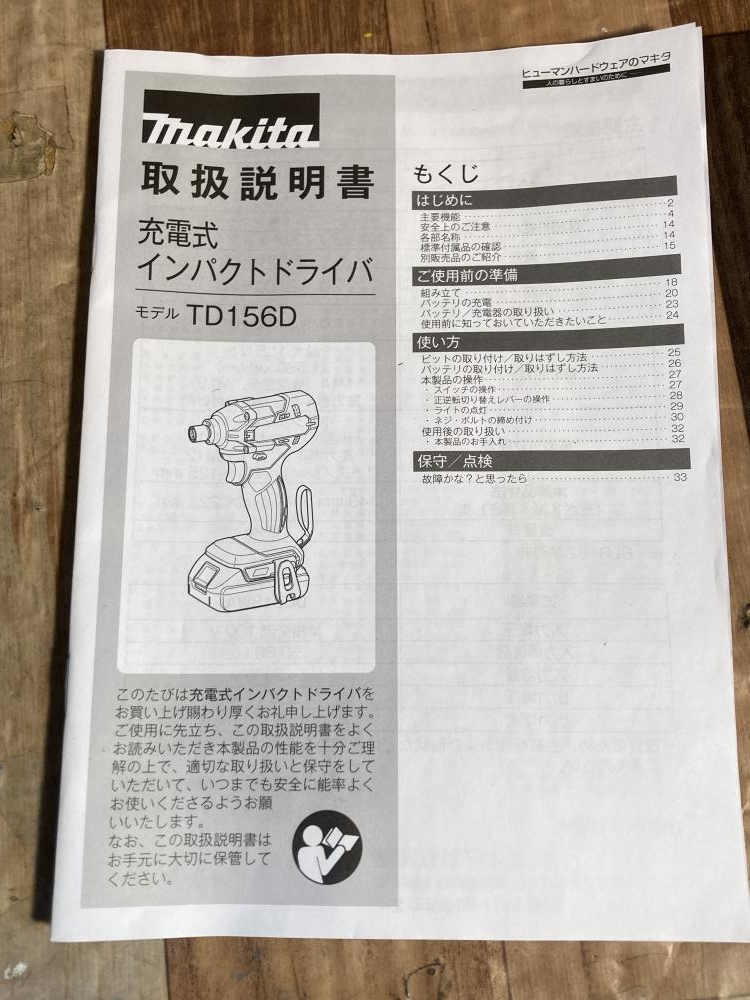 ヒューマンハードウェアのマキタ
人の暮らしとすまいのために
makita
取扱説明書
充電式
インパクトドライバ
モデル TD156D
このたびは充電式インパクトドライバを
お買い上げ賜わり厚くお礼申し上げます。
ご使用に先立ち、この取扱説明書をよく
お読みいただき本製品の性能を十分ご理
解の上で、適切な取り扱いと保守をして
いただいて、いつまでも安全に能率よく
お使いくださるようお願
いいたします。
なお、この取扱説明書は
お手元に大切に保管して
ください。
もくじ
はじめに
主要機能 2
安全上のご注意 4
各部名称 14
標準付属品の確認 14
別販売品のご紹介 15
ご使用前の準備
組み立て 18
バッテリの充電 20
バッテリ／充電器の取り扱い 23
使用前に知っておいていただきたいこと 24
使い方
ビットの取り付け／取りはずし方法 25
バッテリの取り付け／取りはずし方法 26
本製品の操作 27
・スイッチの操作 27
・正逆転切り替えレバーの操作 28
・ライトの点灯 29
・ネジ・ボルトの締め付け 30
使用後の取り扱い 32
・本製品のお手入れ 32
保守／点検
故障かな？と思ったら 33